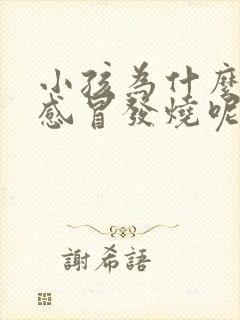 小孩為什麼
感冒發燒呢
謝希語